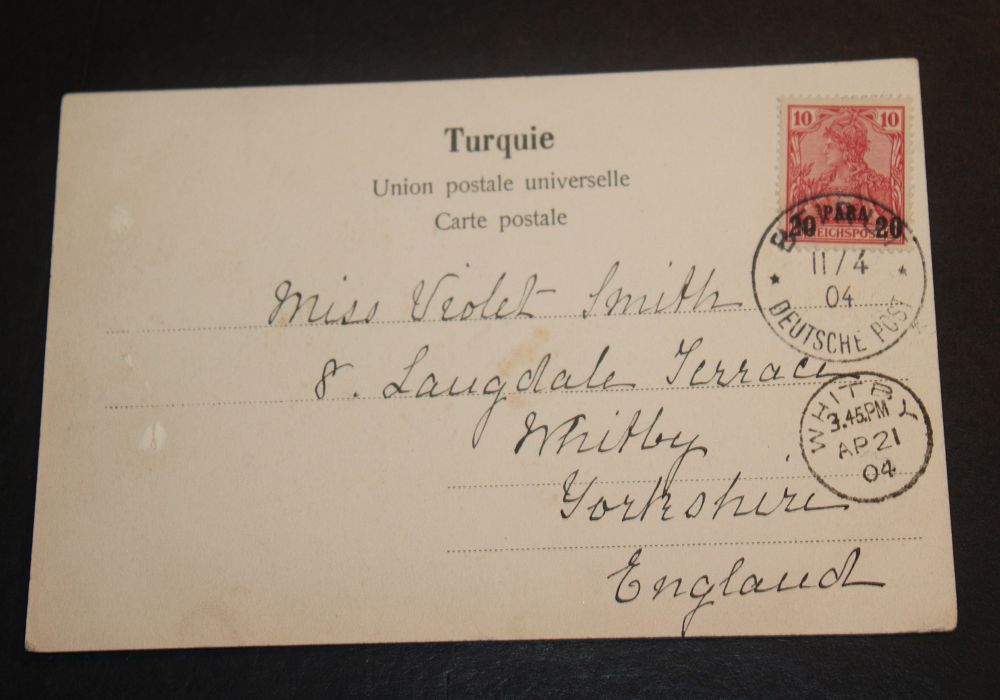 Turquie
Union postale universelle
Carte postale
10 10
20 PARA 20
REICHSPOST
11/4
04
DEUTSCHE POST
Miss Violet Smith
8. Langdale Terrace
Whitby
Yorkshire
England
WHITBY
3.45.PM
AP 21
04